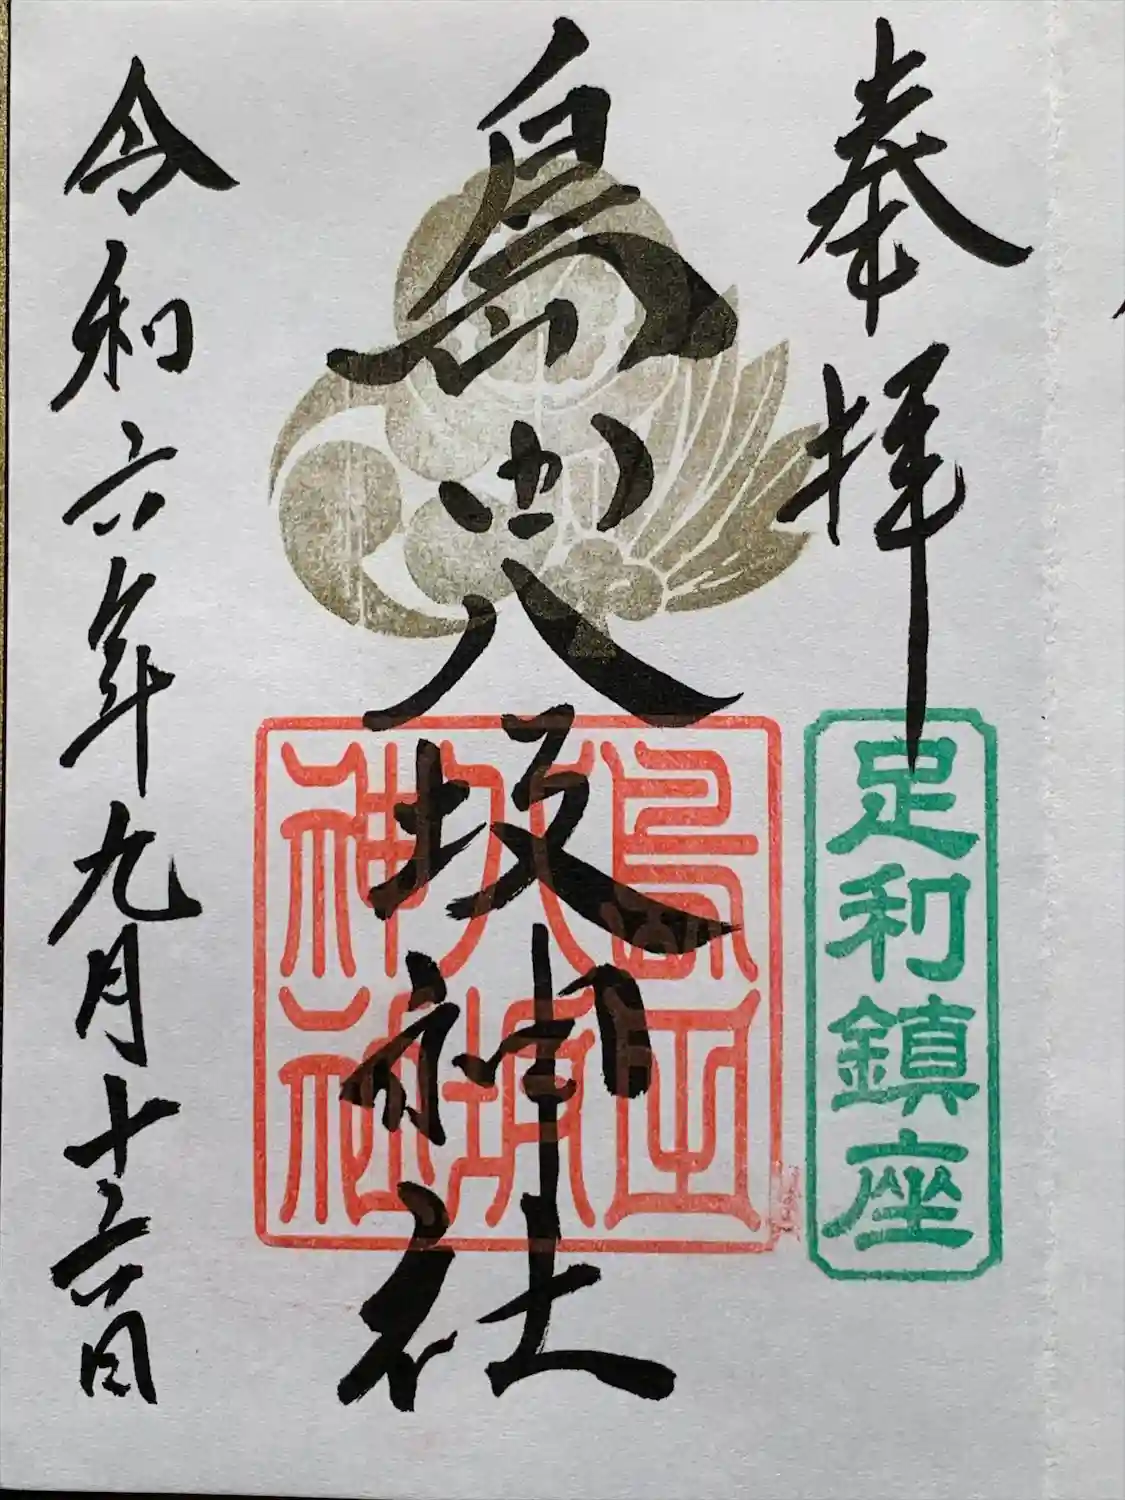 奉拝
足利鎮座
島田八坂神社
島田八坂神社
令和六年九月十六日